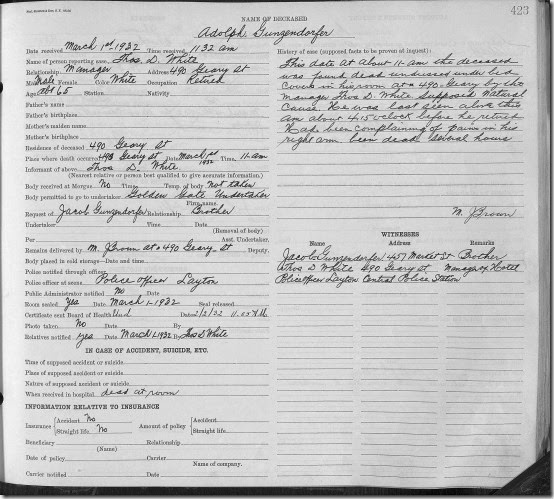 423
NAME OF DECEASED
Adolph Gunzendorfer
Date received March 1st 1932 Time received 11 32 am
Name of person reporting case, Thos. D. White
Relationship Manager Address 490 Geary St
Male Female Color White Occupation Retired
Age abt 65 Station Nativity
Father's name
Father's birthplace
Mother's maiden name
Mother's birthplace
Residence of deceased 490 Geary St
Place where death occurred 490 Geary St Date March 1st 1932 Time, 11-am
Informant of above Thos D. White
(Nearest relative or person best qualified to give accurate information.)
Body received at Morgue No Time Temp. of body Not taken
Body permitted to go to undertaker Golden Gate Undertaker
Firm name
Request of Jacob Gunzendorfer Relationship Brother
Undertaker Time Date
(Removal of body)
Per Asst. Undertaker.
Remains delivered by M. Brown at 490 Geary St Deputy.
Body placed in cold storage—Date and time
Police notified through officer
Police officer at scene Police officer Layton
Public Administrator notified No Date
Room sealed Yes Date March 1-1932 Seal released
Certificate sent Board of Health Und Date 3/2/32 11.05 A.M.
Photo taken No Date By
Relatives notified Yes Date March 1-1932 By Thos D White
IN CASE OF ACCIDENT, SUICIDE, ETC.
Time of supposed accident or suicide
Place of supposed accident or suicide
Nature of supposed accident or suicide
When received in hospital dead at room
INFORMATION RELATIVE TO INSURANCE
Insurance Accident No Amount of policy Accident
Straight life No Straight life
Beneficiary Relationship
(Name)
Date of policy Carrier
Name of company.
Carrier notified Date
History of case (supposed facts to be proven at inquest):
This date at about 11-am the deceased
was found dead undressed under bed
covers in his room at 490-Geary by the
manager Thos D. White. Supposed Natural
Cause. He was last seen alive this
am about 4.15 o'clock before he retired
Had been complaining of pains in his
right arm been dead several hours
M. Brown
WITNESSES
Name Address Remarks
Jacob Gunzendorfer 457 Market St Brother
Thos D White 490 Geary St Manager of Hotel
Police officer Layton Central Police Station